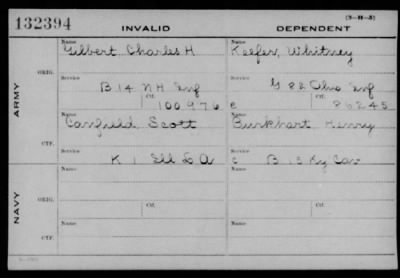 132394 INVALID DEPENDENT (3-11-5)
Name Name
Gilbert Charles H Keefer, Whitney
ARMY
ORIG.
Service Service
B 14 NH Inf G 82 Ohio Inf
Ctf. Ctf.
100976 c 86245
Name Name
Canfield Scott Burkhart Henry
CTF.
Service Service
K 1 Ill L A c B 15 Ky Cav
Name Name
NAVY
ORIG.
Service Ctf. Service Ctf.
Name Name
CTF.
Service Service